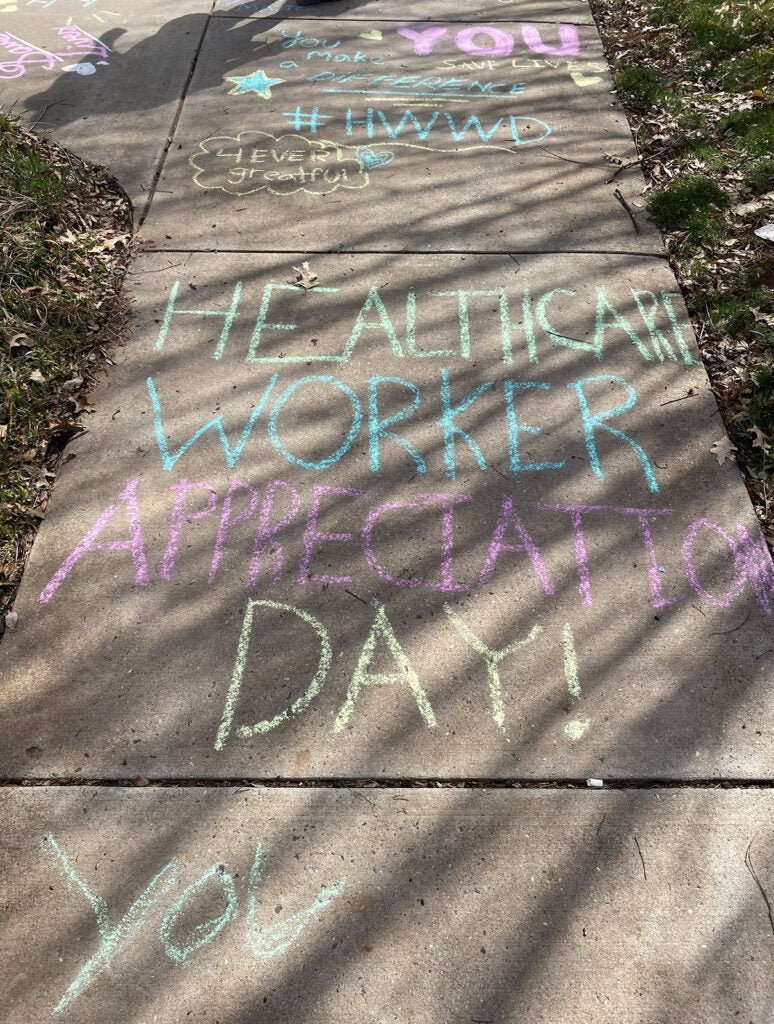 YOU
You make a DIFFERENCE
SAVE LIVES
#HWWD
4EVER
greatful
HEALTHCARE
WORKER
APPRECIATION
DAY!
YOU